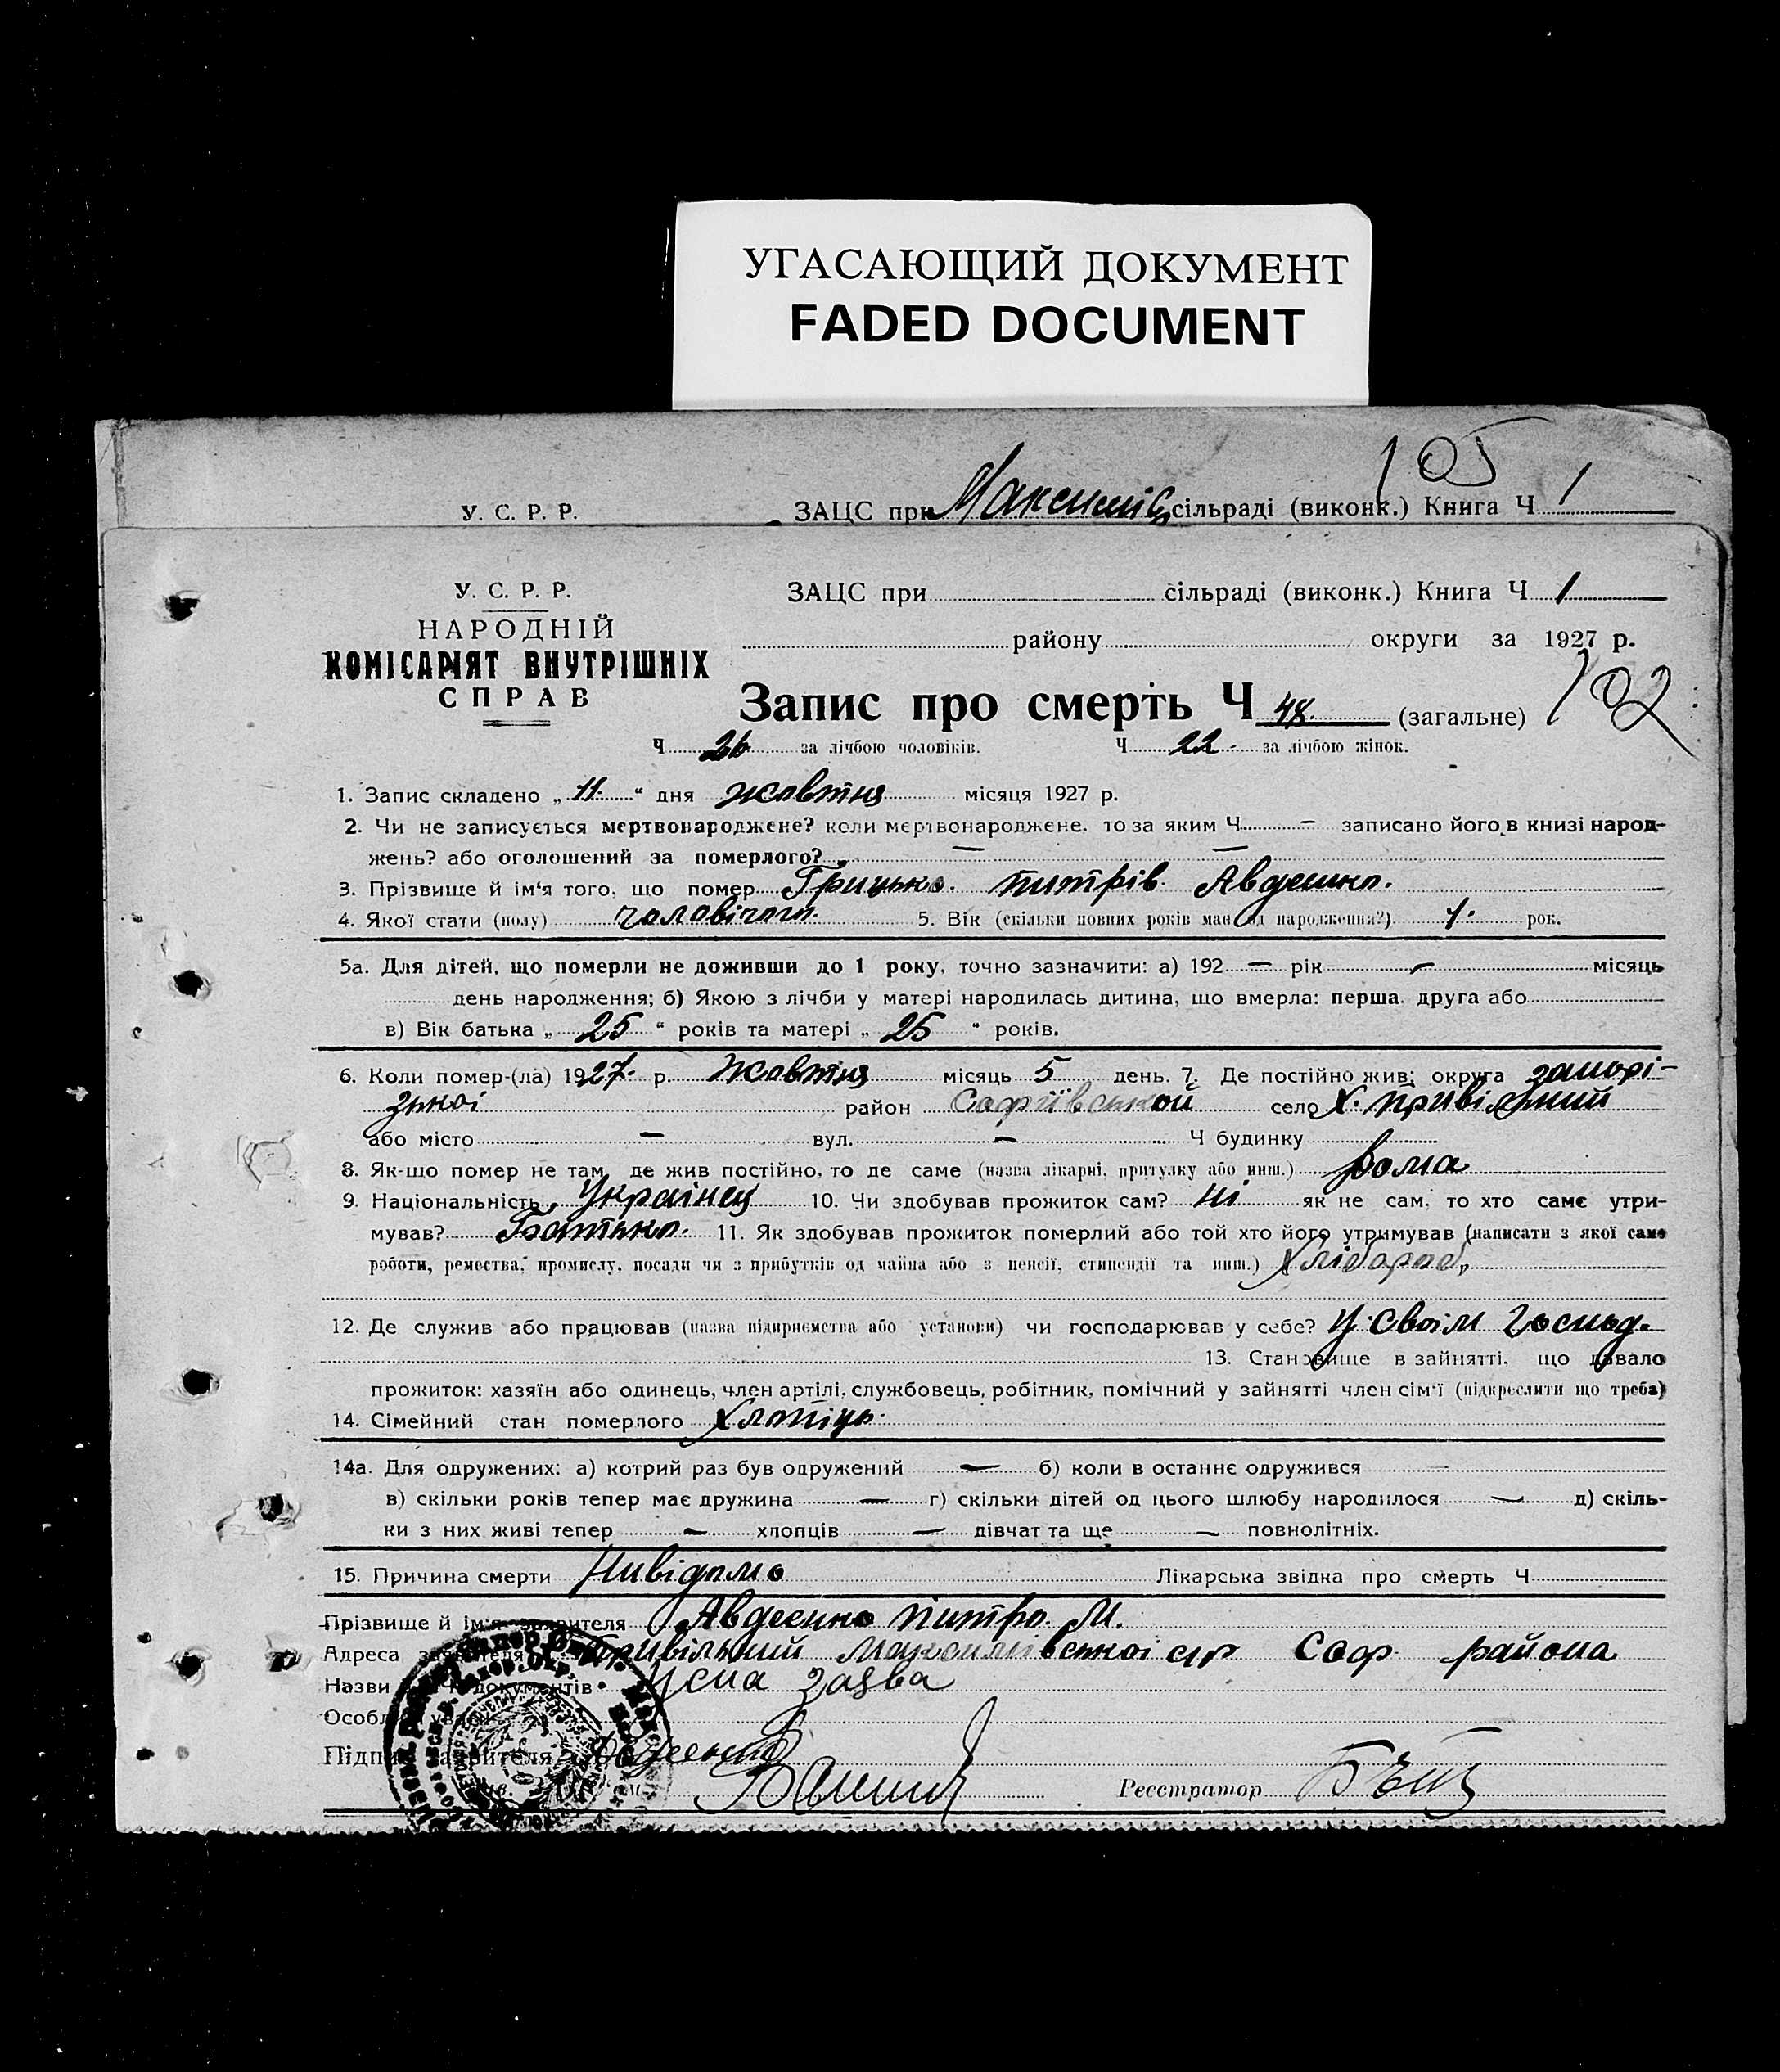 УГАСАЮЩИЙ ДОКУМЕНТ
FADED DOCUMENT
105
У. С. Р. Р. ЗАЦС при сільраді (виконк.) Книга Ч 1
У. С. Р. Р. ЗАЦС при сільраді (виконк.) Книга Ч 1
НАРОДНІЙ
району округи за 1927 р.
КОМІСАРІЯТ ВНУТРІШНІХ
СПРАВ
Запис про смерть Ч 48. (загальне) 102
Ч 26 за лічбою чоловіків. Ч 22 за лічбою жінок.
1. Запис складено „ 11. “ дня жовтня місяця 1927 р.
2. Чи не записується мертвонароджене? коли мертвонароджене, то за яким Ч — записано його в книзі народ-
жень? або оголошений за померлого? — —
3. Прізвище й ім‘я того, що помер Грицько. питрів. Авдеєнко.
4. Якої стати (полу) чоловічого. 5. Вік (скільки повних років має од народження?) 1. рок.
5а. Для дітей, що померли не доживши до 1 року, точно зазначити: а) 192 — рік — місяць
день народження; б) Якою з лічби у матері народилась дитина, що вмерла: перша, друга або
в) Вік батька „ 25 “ років та матері „ 25 “ років.
6. Коли помер-(ла) 1927. р. Жовтня місяць 5 день. 7. Де постійно жив: округа запорі-
зької район Софіївський село Х. привільний
або місто — вул. — Ч будинку
8. Як-що помер не там, де жив постійно, то де саме (назва лікарні, притулку або инш.) дома
9. Національність Українец 10. Чи здобував прожиток сам? ні як не сам, то хто саме утри-
мував? Батько. 11. Як здобував прожиток померлий або той хто його утримував (написати з якої саме
роботи, ремества, промислу, посади чи з прибутків од майна або з пенсії, стипендії та инш.) Хлібороб,
12. Де служив або працював (назва підприємства або установи) чи господарював у себе? У своім господ.
13. Становище в зайнятті, що давало
прожиток: хазяїн або одинець, член артілі, службовець, робітник, помічний у зайнятті член сім‘ї (підкреслити що треба)
14. Сімейний стан померлого Хлопіць.
14а. Для одружених: а) котрий раз був одружений — б) коли в останнє одружився —
в) скільки років тепер має дружина — г) скільки дітей од цього шлюбу народилося — д) скіль-
ки з них живі тепер — хлопців — дівчат та ще — повнолітніх.
15. Причина смерти Нивідомо Лікарська звідка про смерть Ч
Прізвище й ім‘я заявителя Авдеєнко питро. М.
Адреса заявителя Привільний Максимівської с/р Соф района
Назви документів Усна заява
Особл. уваги
Підпис заявителя
Реєстратор